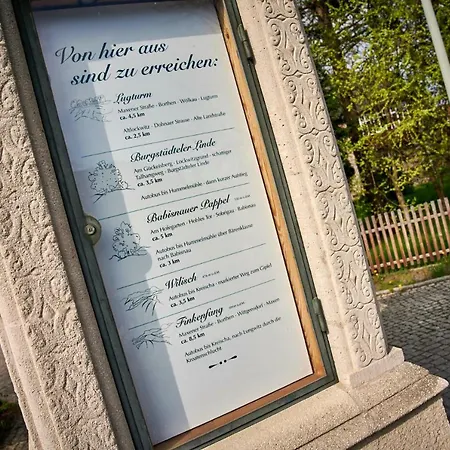 Von hier aus
sind zu erreichen:
Lugturm
Maxener Straße · Borthen · Wölkau · Lugturm
ca. 4,5 km
Altlockwitz · Dohnaer Strasse · Alte Landstraße
ca. 2,5 km
Burgstädteler Linde
Am Gückelsberg · Lockwitzgrund · schattiger
Talhangweg · Burgstädteler Linde
ca. 3,5 km
Autobus bis Hummelmühle · dann kurzer Aufstieg
Babisnauer Pappel
Am Hofegarten · Hohles Tor · Sobrigau · Babisnau
ca. 5 km
Autobus bis Hummelmühle über Bärenklause
nach Babisnau
ca. 3 km
Wilisch
Autobus bis Kreischa · markierter Weg zum Gipfel
ca. 3,5 km
Finckenfang
Maxener Straße · Borthen · Wittgensdorf · Maxen
ca. 8,5 km
Autobus bis Kreischa, nach Lungwitz durch die